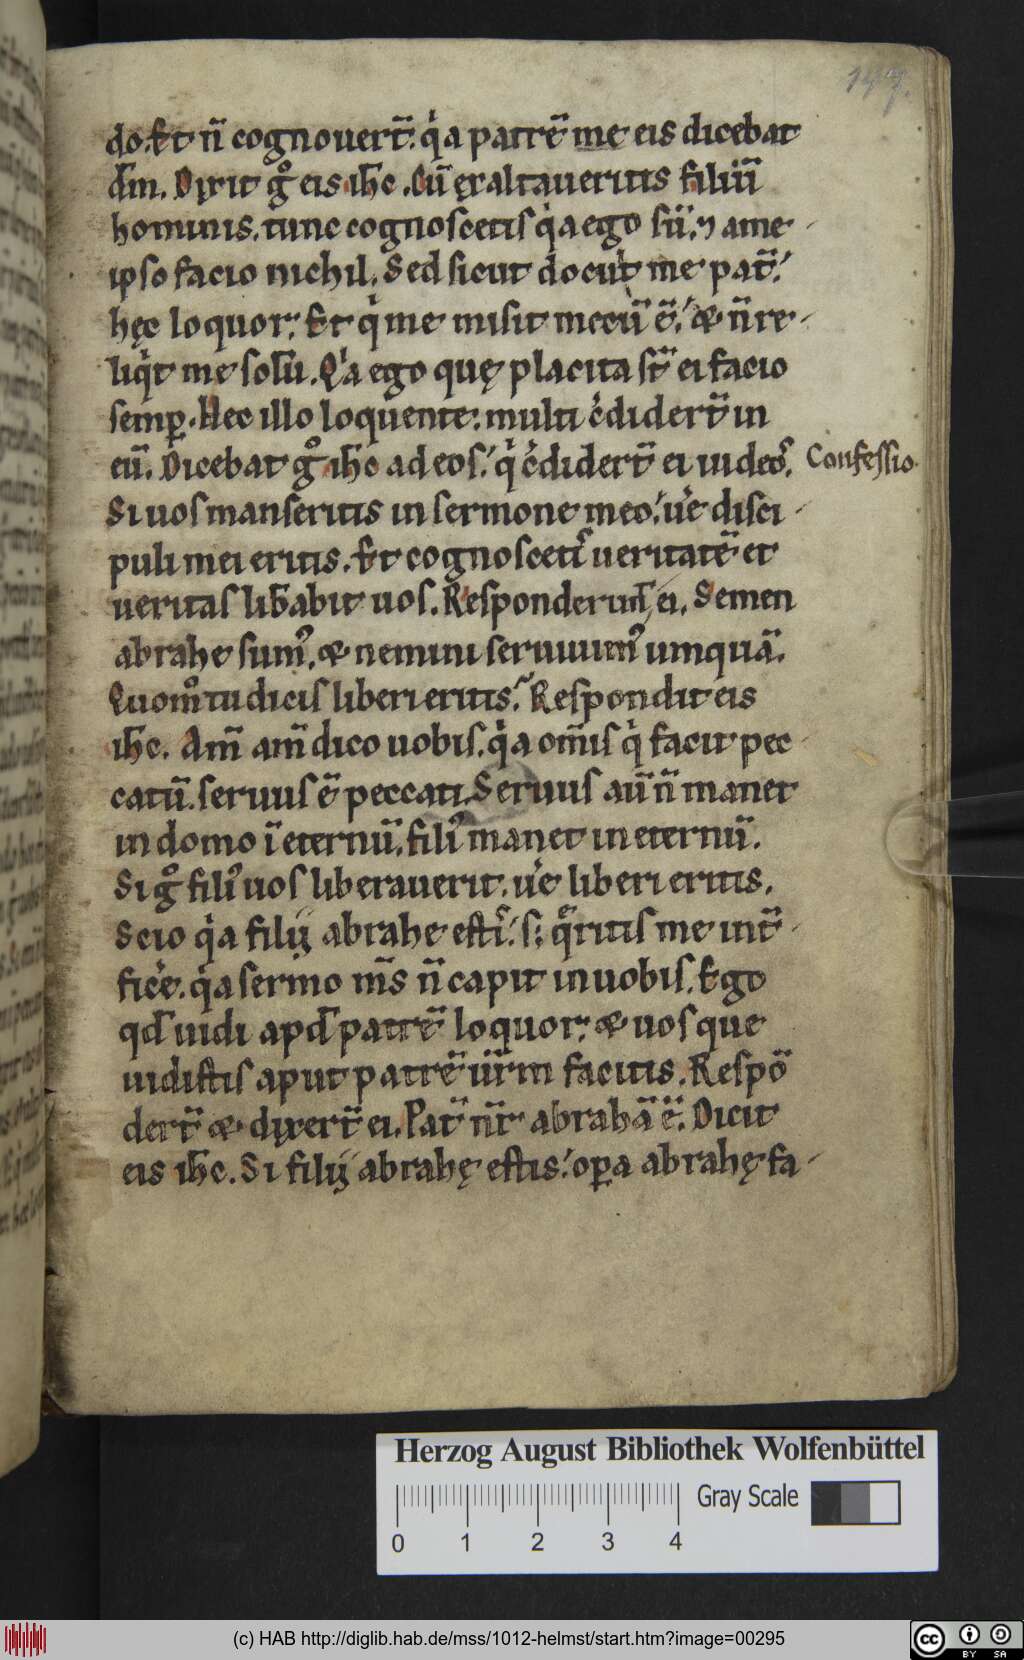 147.
do. Et n̄ cognouert̄. q̇a patrē me eis dicebat
d̄m. Dixit gͦ eis ih̄c. Cū ęxaltaueritis filiū
hominis. tunc cognoscetis q̇a ego sū. ⁊ a me
ipso facio nichil. Sed sicut docuit me pat̄.
hęc loquor. Et q̇ me misit mecū ē. & n̄ re-
liq̇t me solū. Q̇a ego quę placita st̄ ei facio
semꝑ. Hec illo loquente. multi c̓didert̄ in
eū. Dicebat gͦ ih̄c ad eos. q̇ c̓didert̄ ei iudeoˢ. Confessio.
Si uos manseritis in sermone meo. ue̓ disci-
puli mei eritis. Et cognoscetiˢ ueritatē et
ueritas lib̄abit uos. Responderunt ei. Semen
abrahe sumꝰ. & nemini seruiuimꝰ umquā.
Quomͦ tu dicis liberi eritis. Respondit eis
ih̄c. Am̄ am̄ dico uobis. q̇a om̄is q̇ facit pec-
catū. seruus ē peccati. Seruus aū n̄ manet
in domo ī eternū. filiꝰ manet in eternū.
Si gͦ filiꝰ uos liberauerit. ue̓ liberi eritis.
Scio q̇a filij abrahe estiˢ. s; q̄ritis me int̄-
fice̓. q̇a sermo m̄s n̄ capit in uobis. Ego
qd̄ uidi apd̄ patrē loquor. & uos que
uidistis aput patrē ūrm facitis. Respō-
dert̄ & dixert̄ ei. Pat̄ nr̄ abrahā ē. Dicit
eis ih̄c. Si filij abrahę estis. oꝑa abrahę fa-
Herzog August Bibliothek Wolfenbüttel
Gray Scale
0 1 2 3 4
(c) HAB http://diglib.hab.de/mss/1012-helmst/start.htm?image=00295
cc BY SA